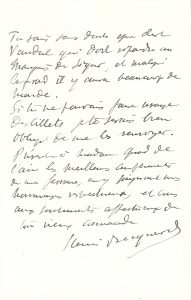 Tu sais sans doute que c'est
Vandal qui doit répondre au
Marquis de Ségur, et malgré
le froid il y aura beaucoup de
monde.
Si tu ne pouvais faire usage
des billets je te serais bien
obligé de me les renvoyer.
Présente à Madame
mes meilleurs compliments
de ma femme, en y joignant mes
hommages respectueux, et crois
aux sentiments affectueux de
ton vieux camarade
Henri Becquerel